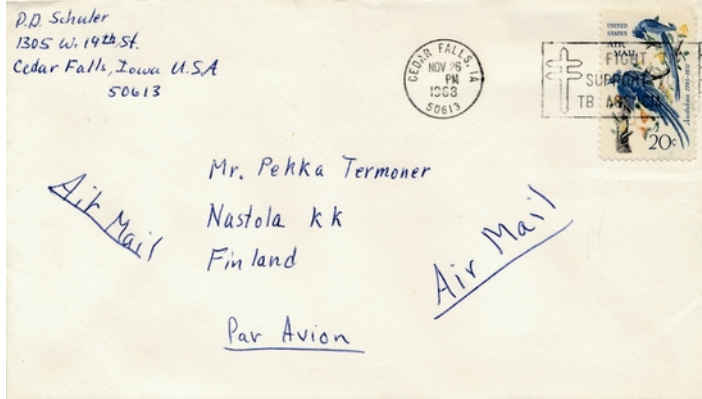 D.D. Schuler
1305 W. 19th St.
Cedar Falls, Iowa U.S.A
50613
CEDAR FALLS, IA
NOV 26
PM
1968
50613
FIGHT
SUPPORT
TB
UNITED
STATES
AIR
MAIL
Audubon 1785-1851
20c
Mr. Pekka Termoner
Nastola kk
Finland
Air Mail
Air Mail
Par Avion